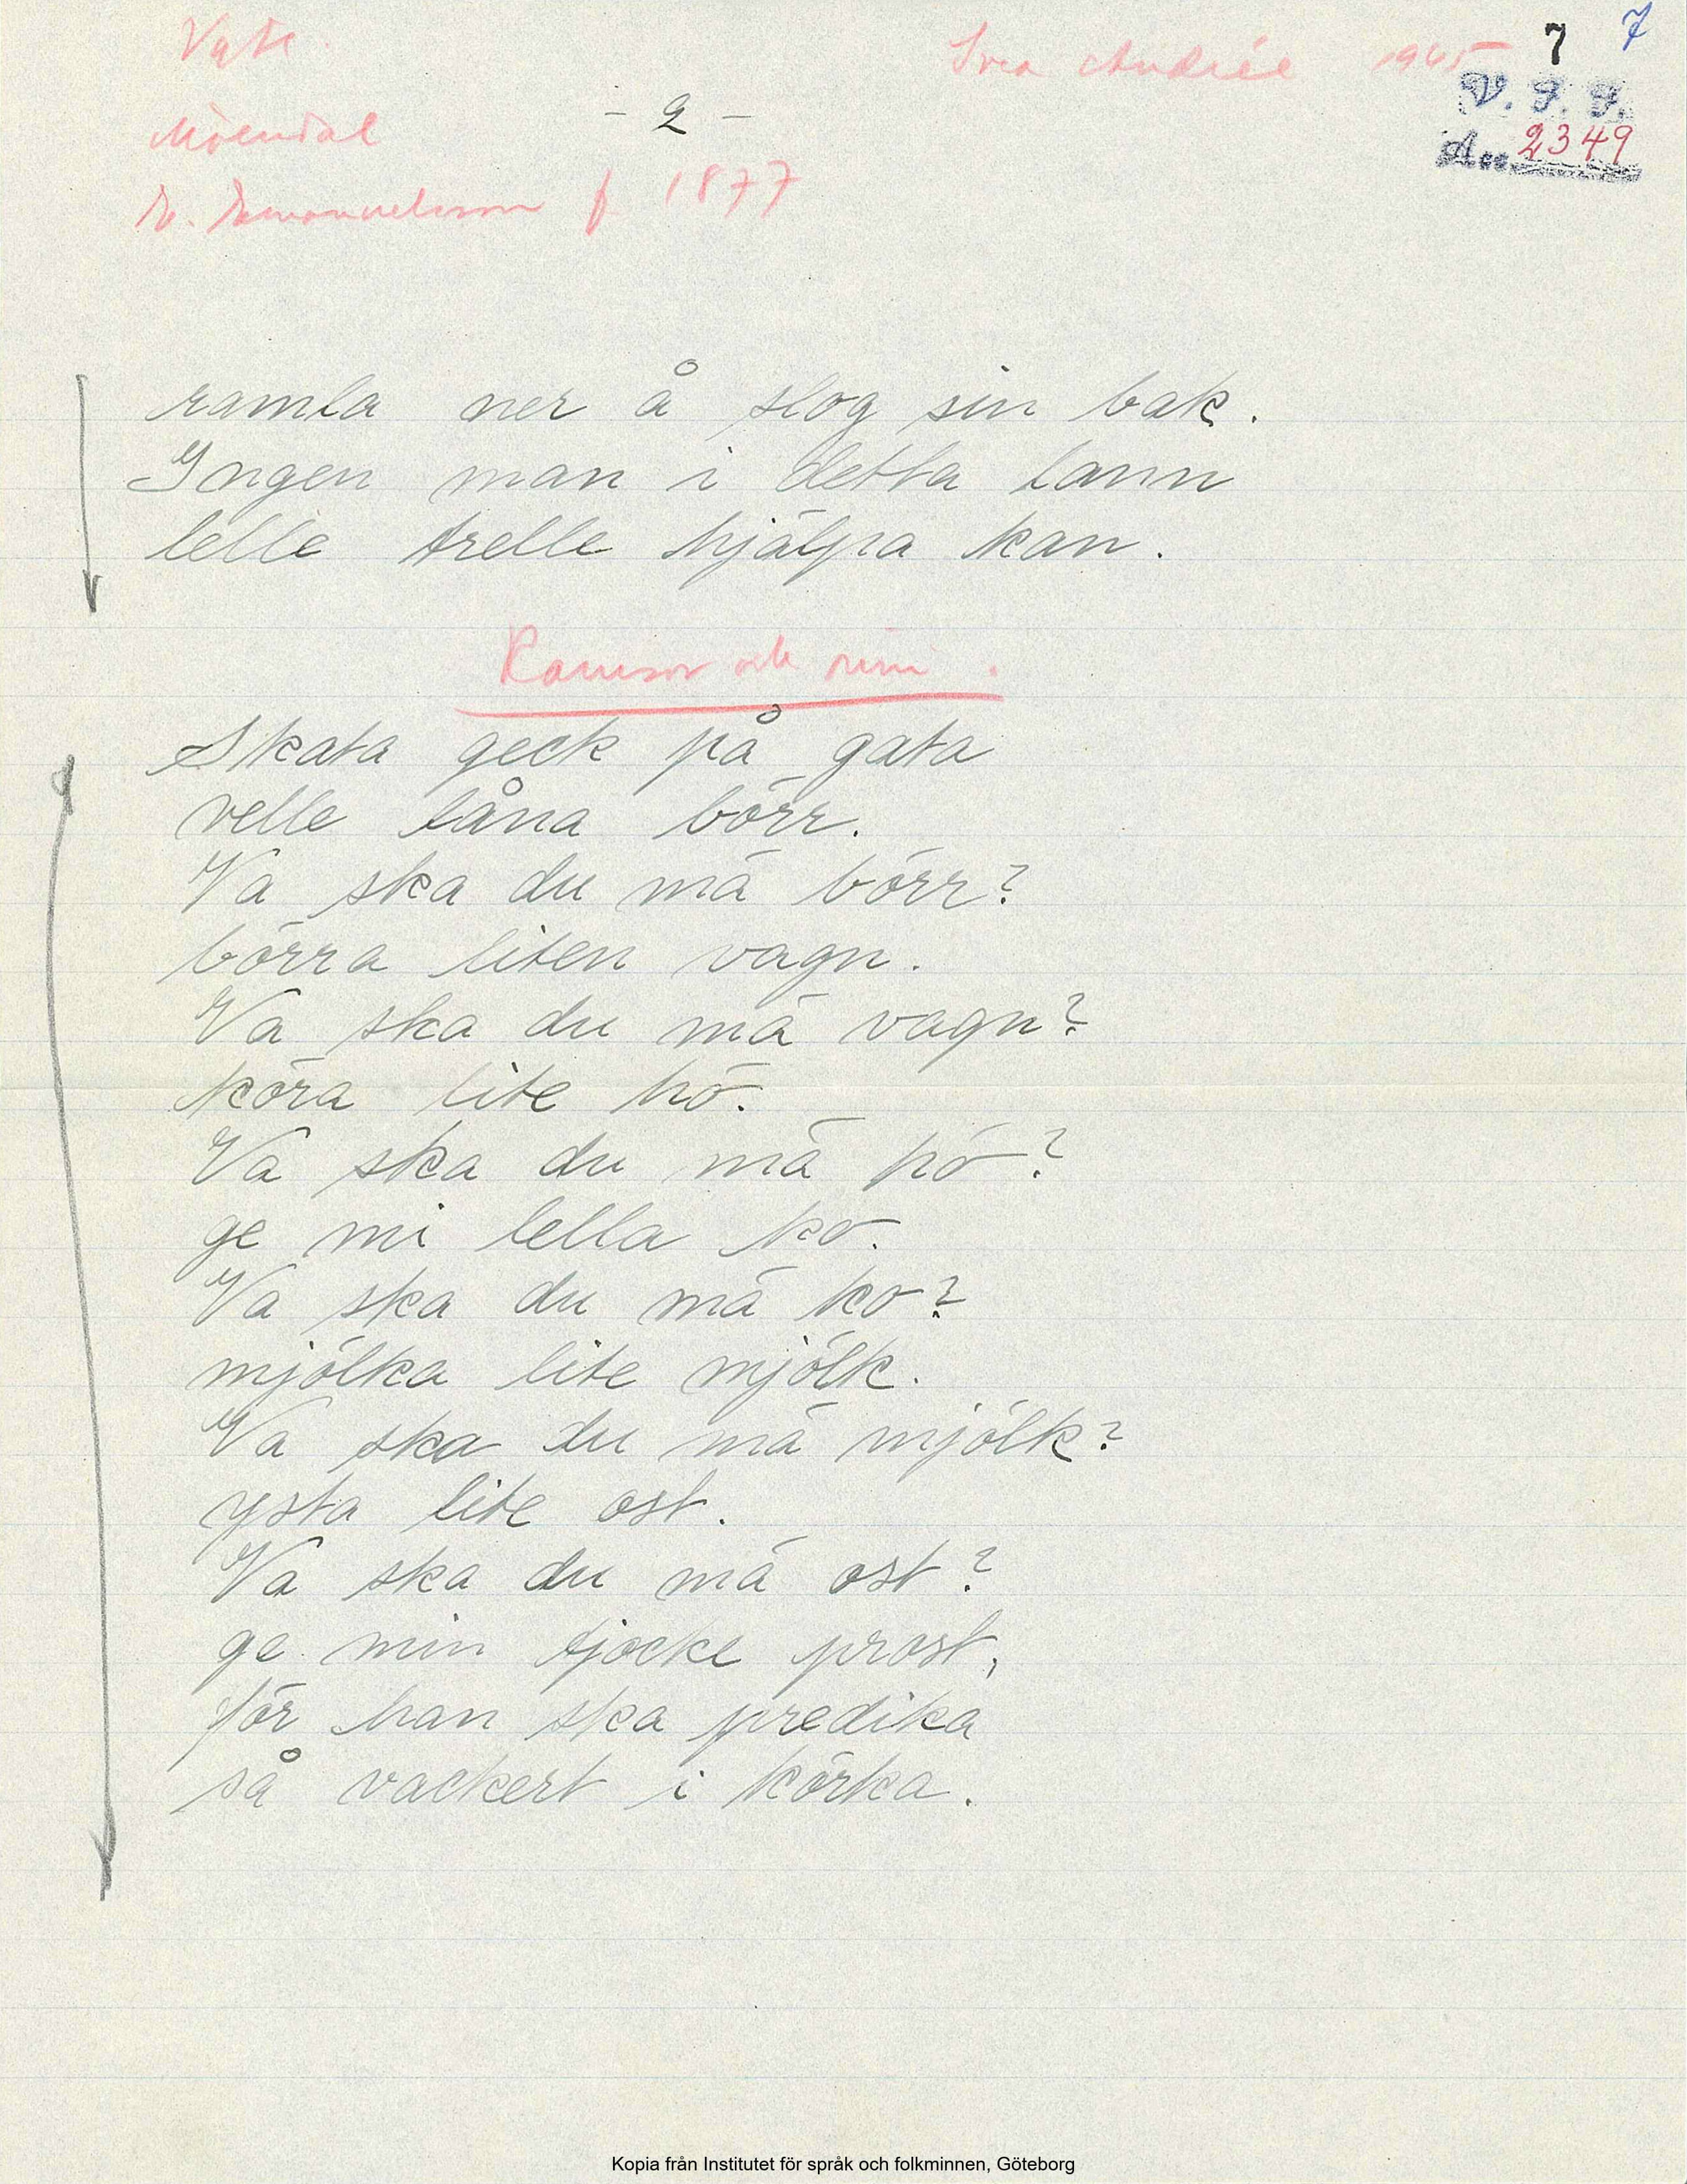 Vgtl.
Svea Andrée 1945 7 7
- 2 -
V. F. F.
Mölndal
Acc. 2349
E. Emanuelsson f 1877
ramla ner å slog sin bak.
Ingen man i detta lann
lelle trelle hjälpa kan.
Ramsor och rim.
Skata geck på gata
velle låna börr.
Va ska du mä börr?
börra liten vagn.
Va ska du mä vagn?
köra lite hö.
Va ska du mä hö?
ge mi lella ko.
Va ska du mä ko?
mjölka lite mjölk.
Va ska du mä mjölk?
ysta lite ost.
Va ska du mä ost?
ge min tjocke prost,
för han ska predika
så vackert i körka.
Kopia från Institutet för språk och folkminnen, Göteborg